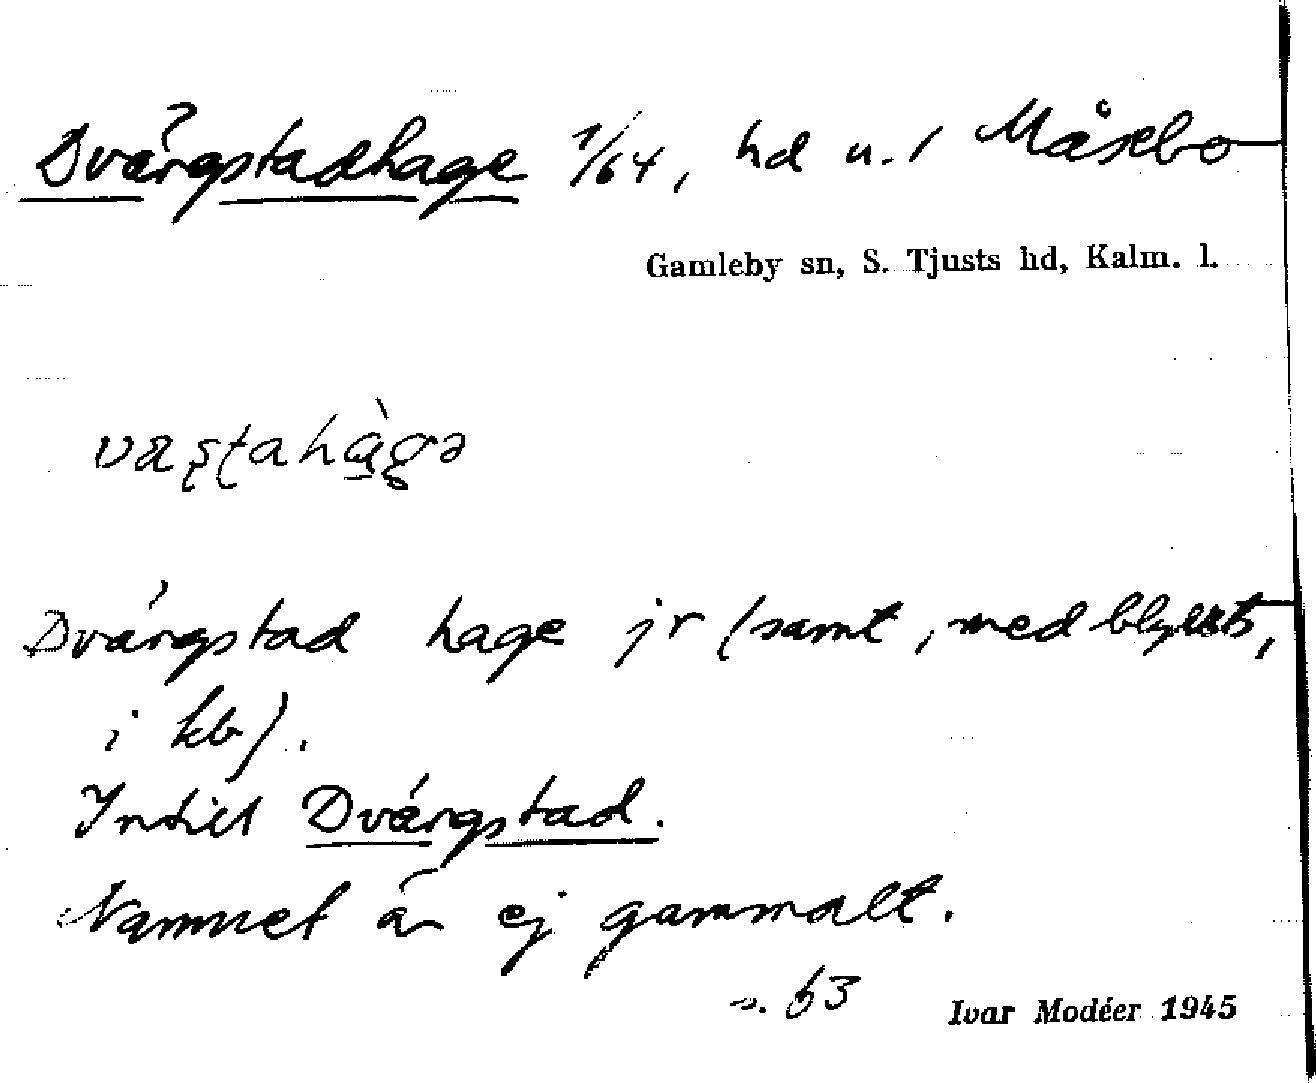 Dvärgstadhage 1/64, hd u. 1 Måsebo
Gamleby sn, S. Tjusts hd, Kalm. l.
Dvärgstad hage jr (samt, med blyerts,
i kb).
Intill Dvärgstad.
Namnet är ej gammalt.
s. 63
Ivar Modéer 1945